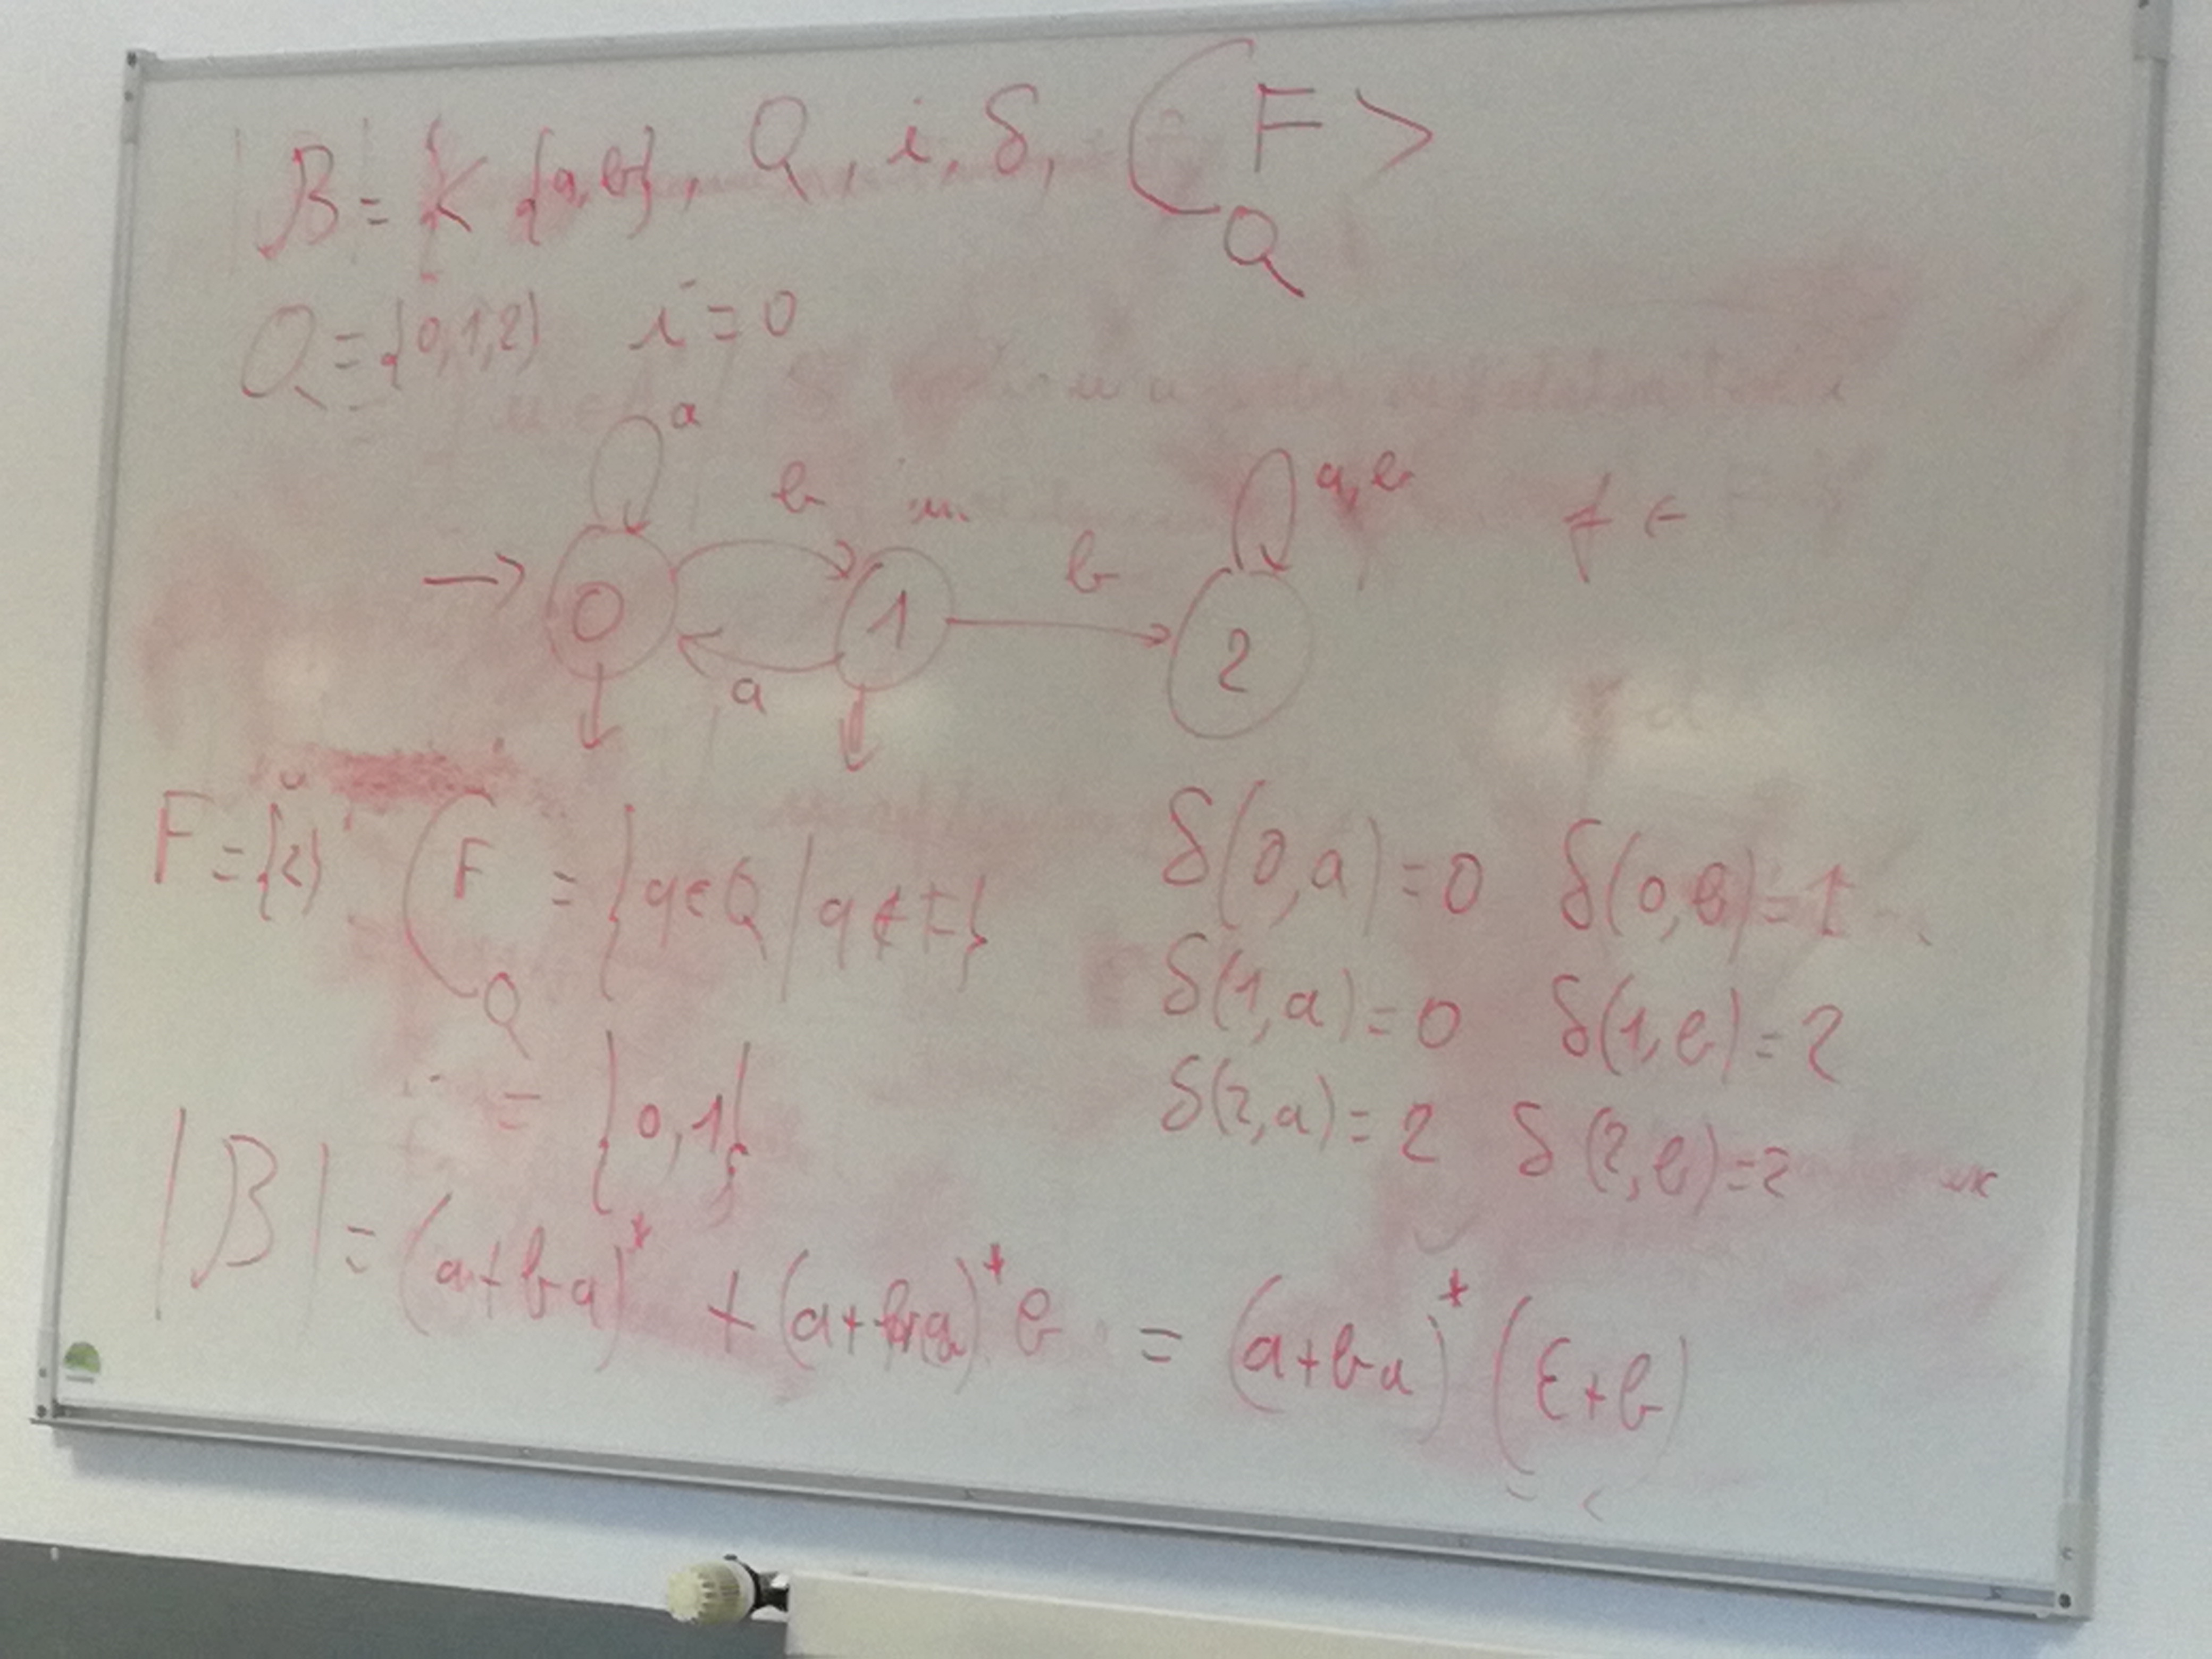 B = < {a,b}, Q, i, δ, ∁_Q F >
Q = {0,1,2} i = 0
a
b b a,b
→ 0 1 2
a
F = {2} ∁_Q F = {q∈Q | q∉F}
= {0,1}
δ(0,a)=0 δ(0,b)=1
δ(1,a)=0 δ(1,b)=2
δ(2,a)=2 δ(2,b)=2
|B| = (a+ba)* + (a+ba)*b = (a+ba)*(ε+b)